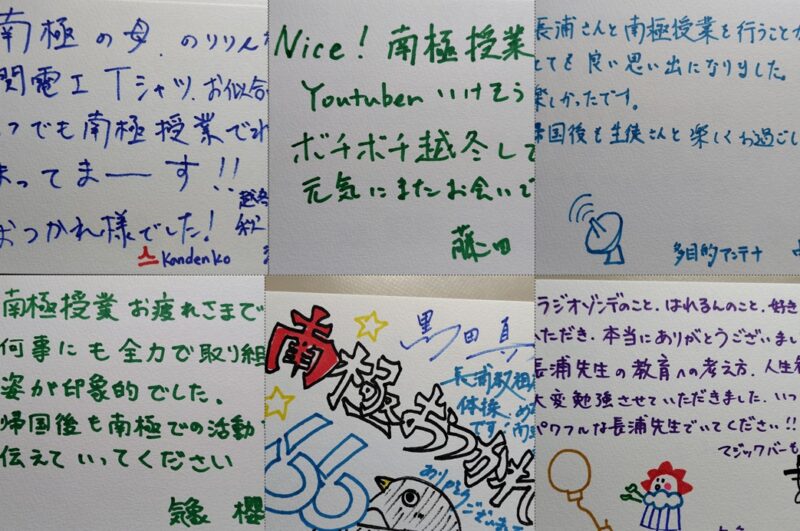 南極の母、のりりん
関電工Tシャツ、お似合
つでも南極授業でれ
まってまーす!!
おつかれ様でした!
越冬
Kandenko
Nice! 南極授業
Youtuberいけそう
ボチボチ越冬して
元気にまたお会いで
藤田
長浦さんと南極授業を行うことが
とても良い思い出になりました。
楽しかったです。
帰国後も生徒さんと楽しくお過ごし
多目的アンテナ
南極授業お疲れさまで
何事にも全力で取り組
姿が印象的でした。
帰国後も南極での活動
伝えていってください
気象 櫻
黒田真
南極おつかれ
長浦
体操
です!
66
ありがとう
ございました
ラジオゾンデのこと、はれるんのこと、好き
いただき、本当にありがとうございまし
長浦先生の教育への考え方、人生
大変勉強させていただきました。いつ
パワフルな長浦先生でいてください!!
マジックバーも